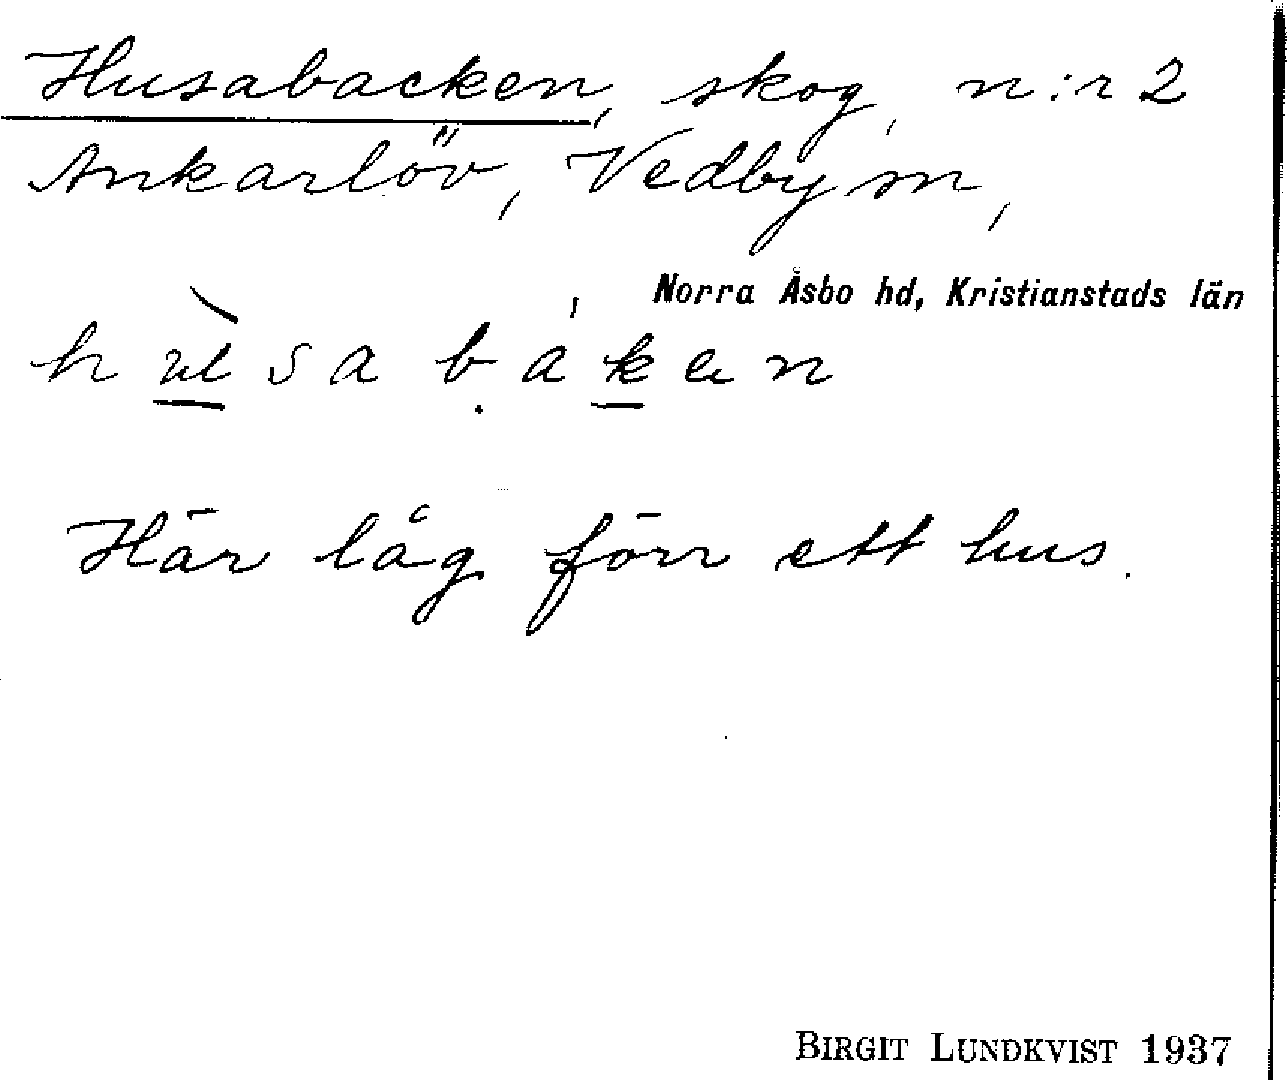 Husabacken, skog, n:r 2
Ankarlöv, Vedby sn,
Norra Åsbo hd, Kristianstads län
Här låg förr ett hus.
BIRGIT LUNDKVIST 1937